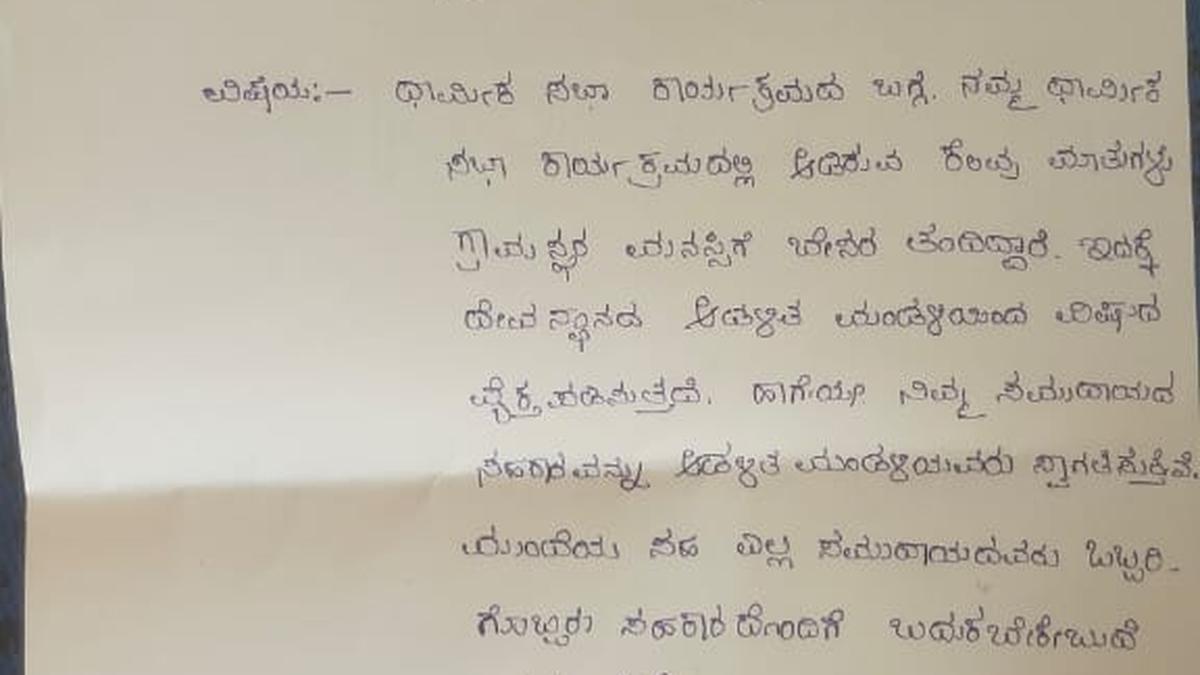 ವಿಷಯ:- ಧಾರ್ಮಿಕ ಸಭಾ ಕಾರ್ಯಕ್ರಮದ ಬಗ್ಗೆ. ನಮ್ಮ ಧಾರ್ಮಿಕ
ಸಭಾ ಕಾರ್ಯಕ್ರಮದಲ್ಲಿ ಆಡಿರುವ ಕೆಲವು ಮಾತುಗಳು
ಗ್ರಾಮಸ್ಥರ ಮನಸ್ಸಿಗೆ ಬೇಸರ ತಂದಿದ್ದಾರೆ. ಇದಕ್ಕೆ
ದೇವಸ್ಥಾನದ ಆಡಳಿತ ಮಂಡಳಿಯಿಂದ ವಿಷಾದ
ವೈಕ್ತಪಡಿಸುತ್ತದೆ. ಹಾಗೆಯೇ ನಿಮ್ಮ ಸಮುದಾಯದ
ಸಹಕಾರವನ್ನು ಆಡಳಿತ ಮಂಡಳಿಯವರು ಸ್ವಾಗತಿಸುತ್ತೆವೆ.
ಮುಂದೆಯು ಸಹ ಎಲ್ಲ ಸಮುದಾಯದವರು ಒಬ್ಬರಿ-
ಗೊಬ್ಬರು ಸಹಕಾರದೊಂದಿಗೆ ಬದುಕಬೇಕೇಬುದೆ